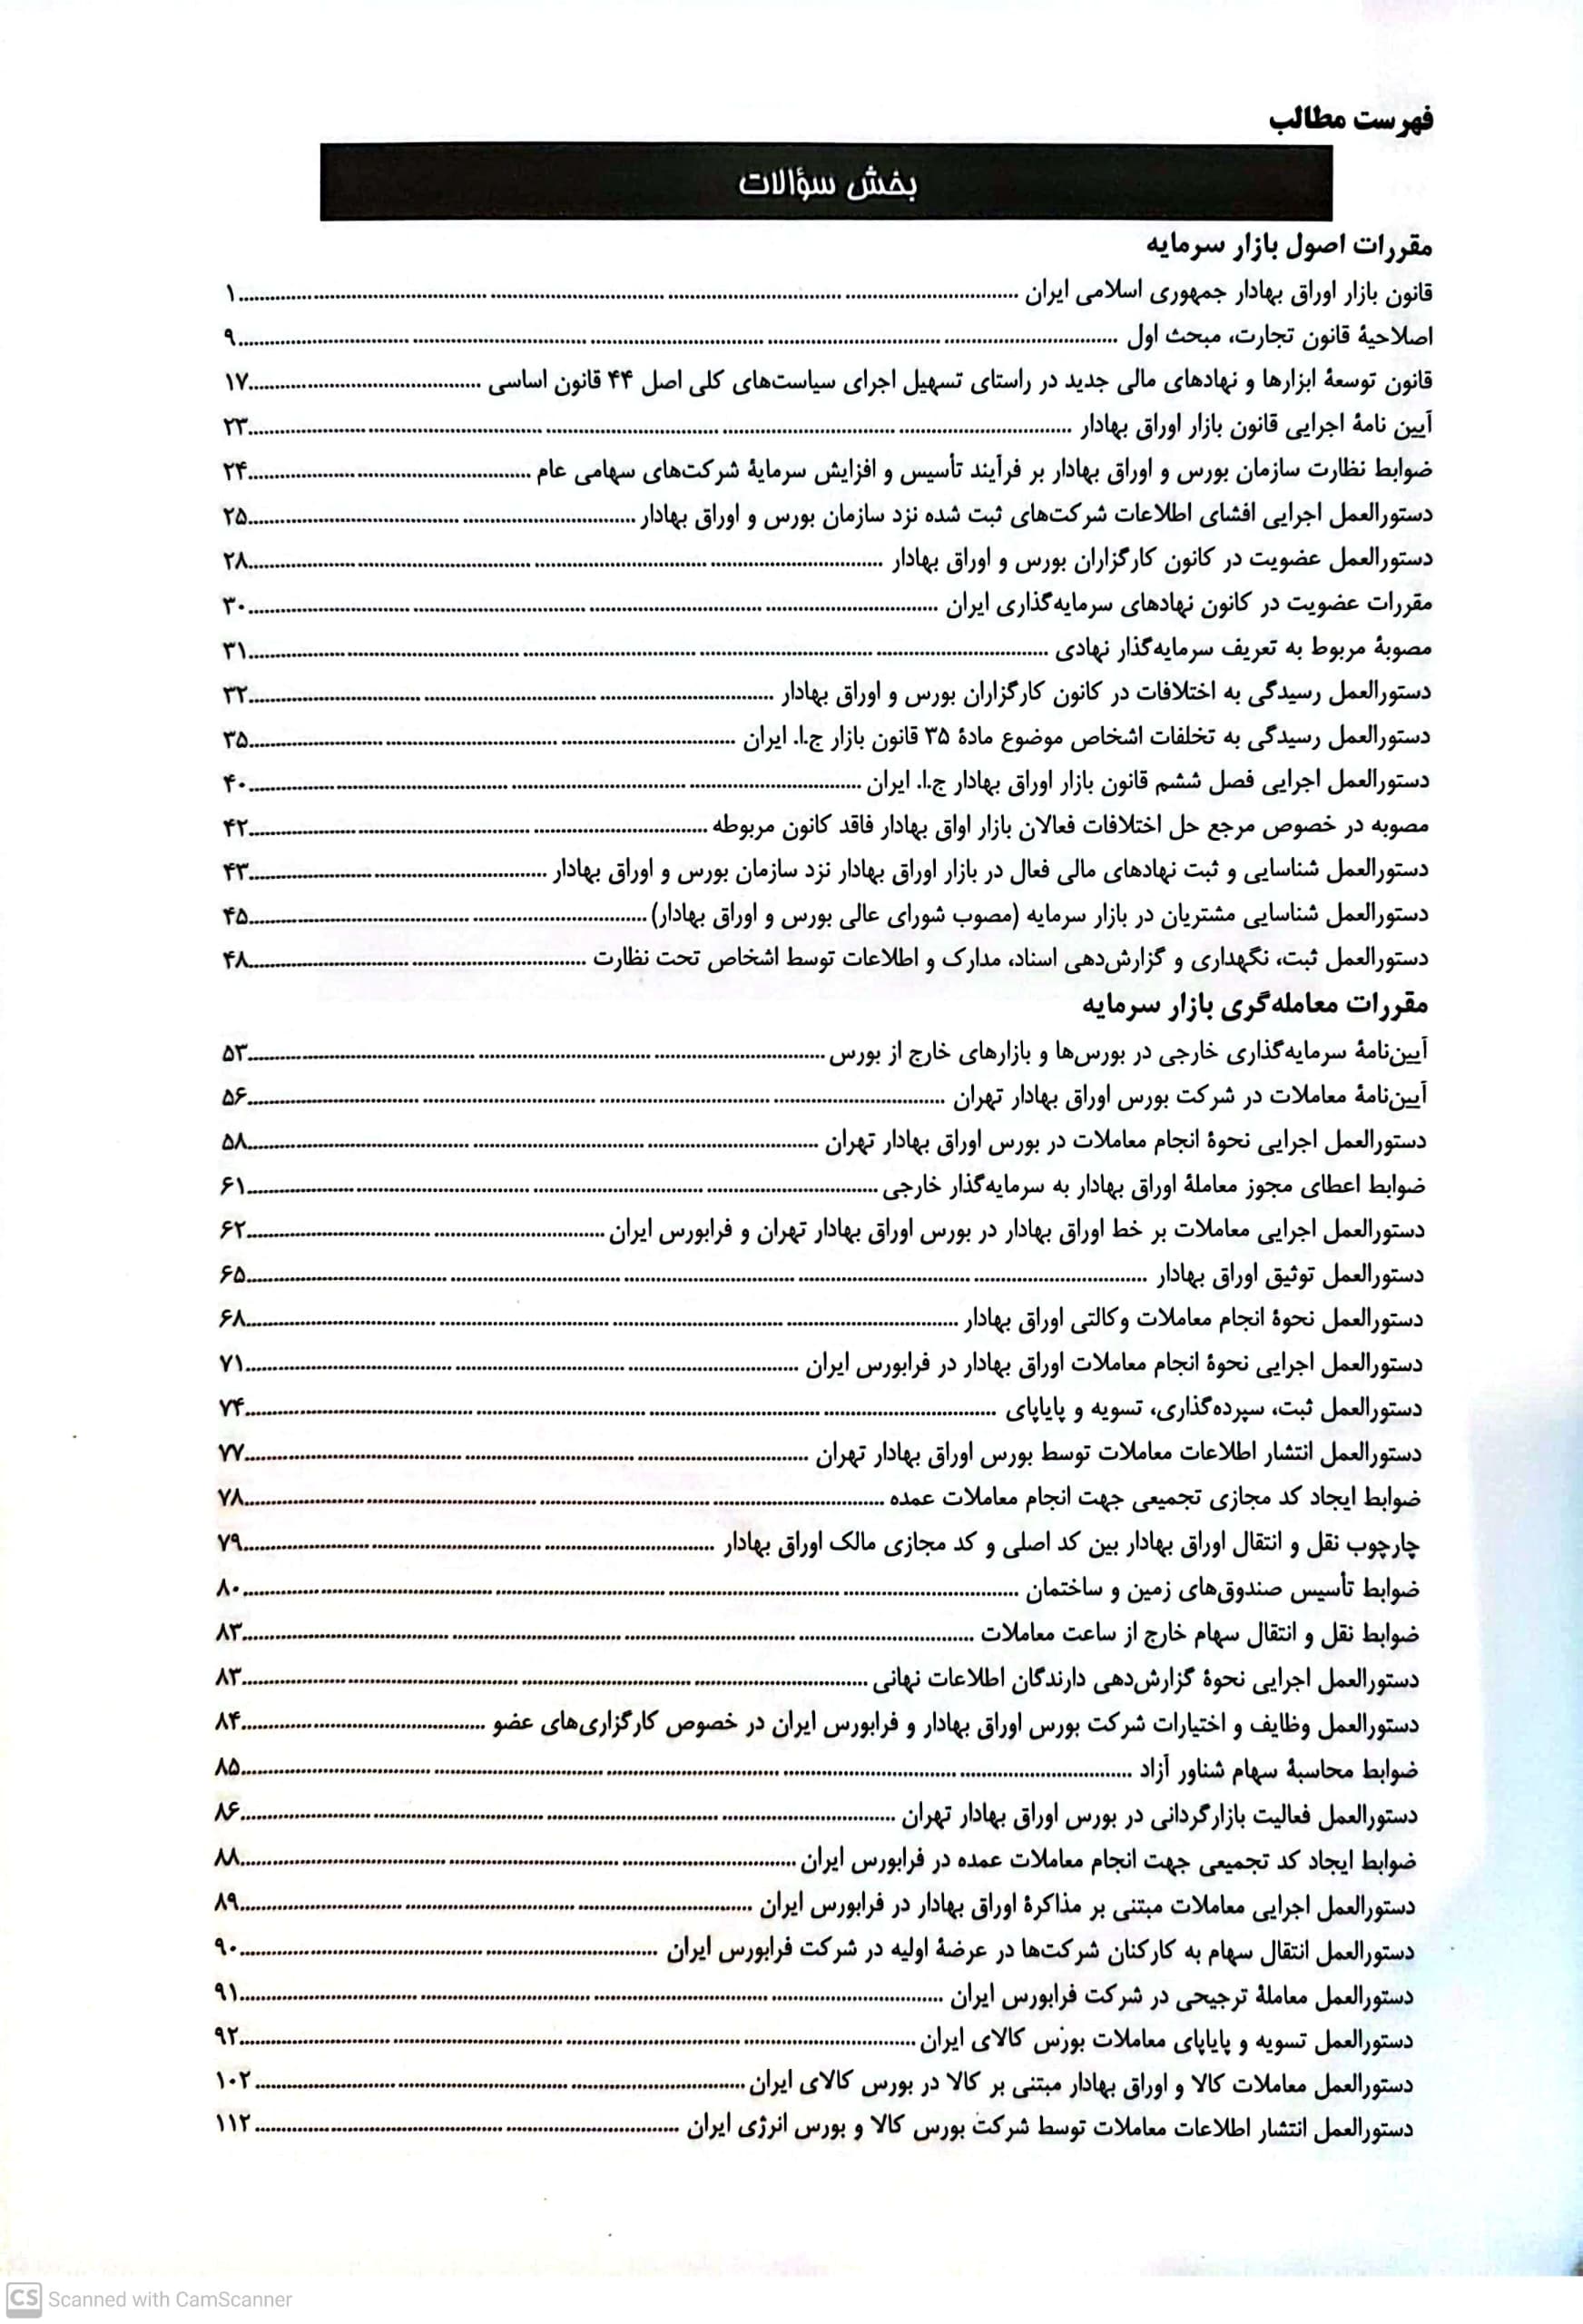 فهرست مطالب
بخش سؤالات
مقررات اصول بازار سرمایه
قانون بازار اوراق بهادار جمهوری اسلامی ایران ........ ۱
اصلاحیهٔ قانون تجارت، مبحث اول ........ ۹
قانون توسعهٔ ابزارها و نهادهای مالی جدید در راستای تسهیل اجرای سیاست‌های کلی اصل ۴۴ قانون اساسی ........ ۱۷
آیین نامهٔ اجرایی قانون بازار اوراق بهادار ........ ۲۳
ضوابط نظارت سازمان بورس و اوراق بهادار بر فرآیند تأسیس و افزایش سرمایهٔ شرکت‌های سهامی عام ........ ۲۴
دستورالعمل اجرایی افشای اطلاعات شرکت‌های ثبت شده نزد سازمان بورس و اوراق بهادار ........ ۲۵
دستورالعمل عضویت در کانون کارگزاران بورس و اوراق بهادار ........ ۲۸
مقررات عضویت در کانون نهادهای سرمایه‌گذاری ایران ........ ۳۰
مصوبهٔ مربوط به تعریف سرمایه‌گذار نهادی ........ ۳۱
دستورالعمل رسیدگی به اختلافات در کانون کارگزاران بورس و اوراق بهادار ........ ۳۲
دستورالعمل رسیدگی به تخلفات اشخاص موضوع مادهٔ ۳۵ قانون بازار ج.ا. ایران ........ ۳۵
دستورالعمل اجرایی فصل ششم قانون بازار اوراق بهادار ج.ا. ایران ........ ۴۰
مصوبه در خصوص مرجع حل اختلافات فعالان بازار اواق بهادار فاقد کانون مربوطه ........ ۴۲
دستورالعمل شناسایی و ثبت نهادهای مالی فعال در بازار اوراق بهادار نزد سازمان بورس و اوراق بهادار ........ ۴۳
دستورالعمل شناسایی مشتریان در بازار سرمایه (مصوب شورای عالی بورس و اوراق بهادار) ........ ۴۵
دستورالعمل ثبت، نگهداری و گزارش‌دهی اسناد، مدارک و اطلاعات توسط اشخاص تحت نظارت ........ ۴۸
مقررات معامله‌گری بازار سرمایه
آیین‌نامهٔ سرمایه‌گذاری خارجی در بورس‌ها و بازارهای خارج از بورس ........ ۵۳
آیین‌نامهٔ معاملات در شرکت بورس اوراق بهادار تهران ........ ۵۶
دستورالعمل اجرایی نحوهٔ انجام معاملات در بورس اوراق بهادار تهران ........ ۵۸
ضوابط اعطای مجوز معاملهٔ اوراق بهادار به سرمایه‌گذار خارجی ........ ۶۱
دستورالعمل اجرایی معاملات بر خط اوراق بهادار در بورس اوراق بهادار تهران و فرابورس ایران ........ ۶۲
دستورالعمل توثیق اوراق بهادار ........ ۶۵
دستورالعمل نحوهٔ انجام معاملات وکالتی اوراق بهادار ........ ۶۸
دستورالعمل اجرایی نحوهٔ انجام معاملات اوراق بهادار در فرابورس ایران ........ ۷۱
دستورالعمل ثبت، سپرده‌گذاری، تسویه و پایاپای ........ ۷۴
دستورالعمل انتشار اطلاعات معاملات توسط بورس اوراق بهادار تهران ........ ۷۷
ضوابط ایجاد کد مجازی تجمیعی جهت انجام معاملات عمده ........ ۷۸
چارچوب نقل و انتقال اوراق بهادار بین کد اصلی و کد مجازی مالک اوراق بهادار ........ ۷۹
ضوابط تأسیس صندوق‌های زمین و ساختمان ........ ۸۰
ضوابط نقل و انتقال سهام خارج از ساعت معاملات ........ ۸۳
دستورالعمل اجرایی نحوهٔ گزارش‌دهی دارندگان اطلاعات نهانی ........ ۸۳
دستورالعمل وظایف و اختیارات شرکت بورس اوراق بهادار و فرابورس ایران در خصوص کارگزاری‌های عضو ........ ۸۴
ضوابط محاسبهٔ سهام شناور آزاد ........ ۸۵
دستورالعمل فعالیت بازارگردانی در بورس اوراق بهادار تهران ........ ۸۶
ضوابط ایجاد کد تجمیعی جهت انجام معاملات عمده در فرابورس ایران ........ ۸۸
دستورالعمل اجرایی معاملات مبتنی بر مذاکرهٔ اوراق بهادار در فرابورس ایران ........ ۸۹
دستورالعمل انتقال سهام به کارکنان شرکت‌ها در عرضهٔ اولیه در شرکت فرابورس ایران ........ ۹۰
دستورالعمل معاملهٔ ترجیحی در شرکت فرابورس ایران ........ ۹۱
دستورالعمل تسویه و پایاپای معاملات بورس کالای ایران ........ ۹۲
دستورالعمل معاملات کالا و اوراق بهادار مبتنی بر کالا در بورس کالای ایران ........ ۱۰۲
دستورالعمل انتشار اطلاعات معاملات توسط شرکت بورس کالا و بورس انرژی ایران ........ ۱۱۲
CS Scanned with CamScanner